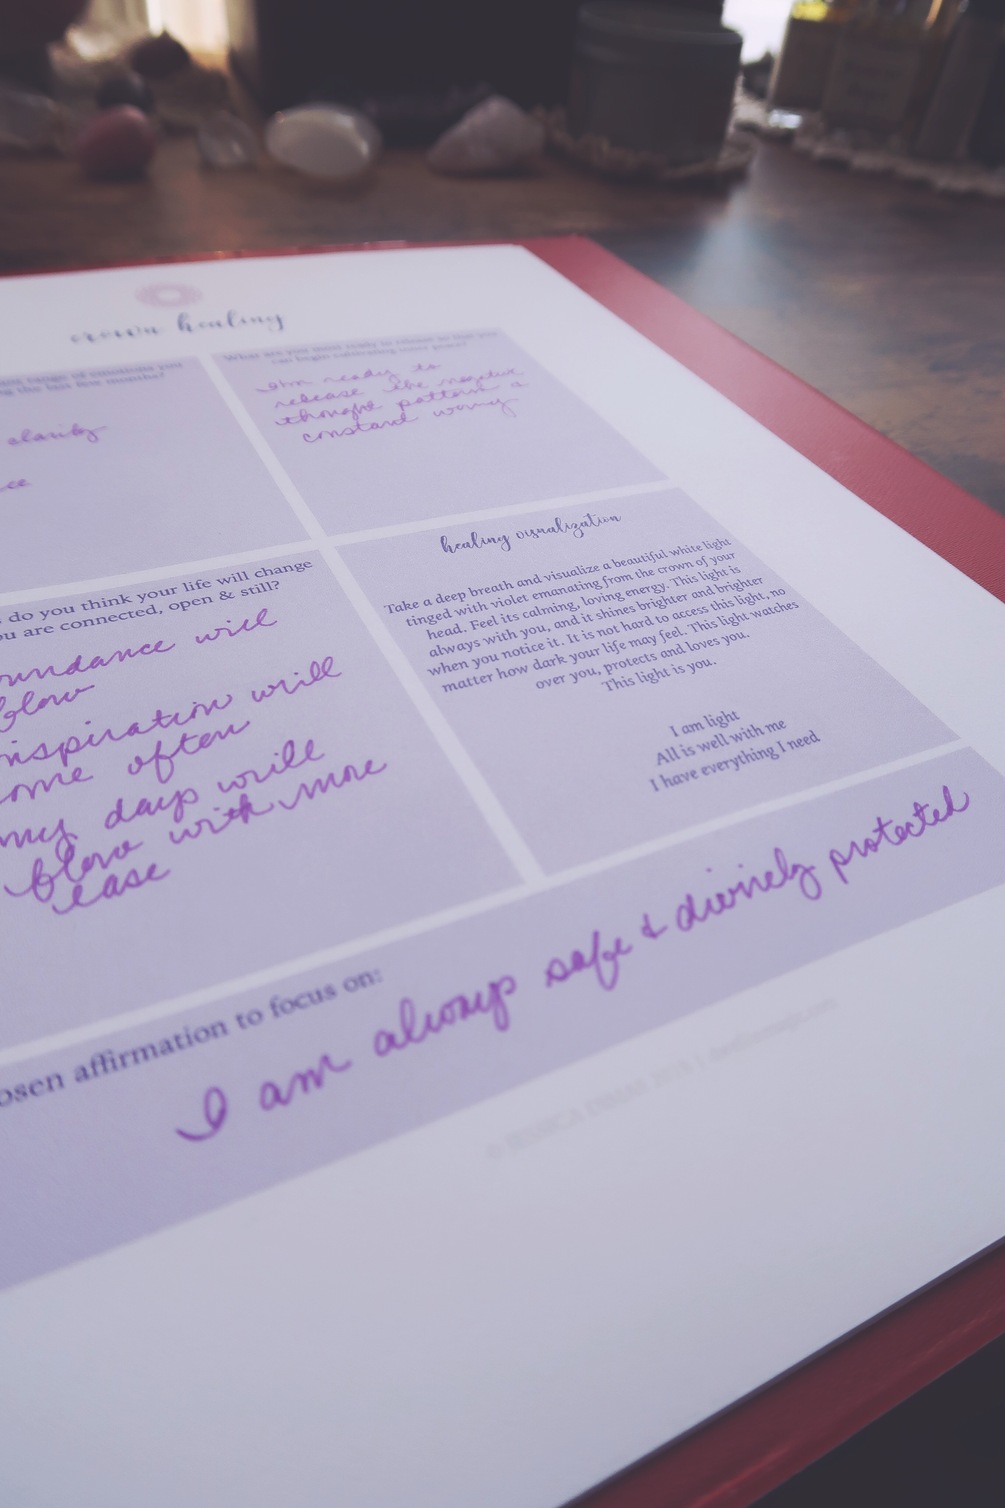 crown healing
range of emotions you
the last few months?
clarity
What are you most ready to release so that you
can begin cultivating inner peace?
I'm ready to
release the negative
thought patterns &
constant worry
do you think your life will change
you are connected, open & still?
abundance will
flow
inspiration will
come often
my days will
flow with more
ease
healing visualization
Take a deep breath and visualize a beautiful white light
tinged with violet emanating from the crown of your
head. Feel its calming, loving energy. This light is
always with you, and it shines brighter and brighter
when you notice it. It is not hard to access this light, no
matter how dark your life may feel. This light watches
over you, protects and loves you.
This light is you.
I am light
All is well with me
I have everything I need
affirmation to focus on:
I am always safe & divinely protected